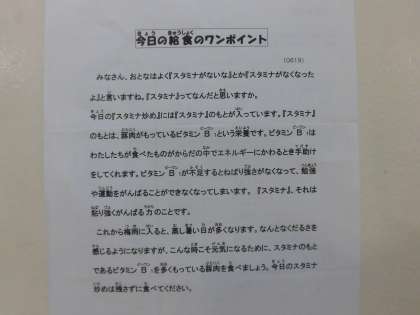 今日の給食のワンポイント
(0619)
みなさん、おとなはよく『スタミナがないな』とか『スタミナがなくなった
よ』と言いますね。『スタミナ』ってなんだと思いますか。
今日の『スタミナ炒め』には『スタミナ』のもとが入っています。『スタミナ』
のもとは、豚肉がもっているビタミンB₁という栄養です。ビタミンB₁は
わたしたちが食べたものがからだの中でエネルギーにかわるとき手助け
をしてくれます。ビタミンB₁が不足するとねばり強さがなくなって、勉強
や運動をがんばることができなくなってしまいます。『スタミナ』、それは
粘り強くがんばる力のことです。
これから梅雨に入ると、蒸し暑い日が多くなります。なんとなくだるさを
感じるようになりますが、こんな時こそ元気になるために、スタミナのもと
であるビタミンB₁を多くもっている豚肉を食べましょう。今日のスタミナ
炒めは残さずに食べてください。